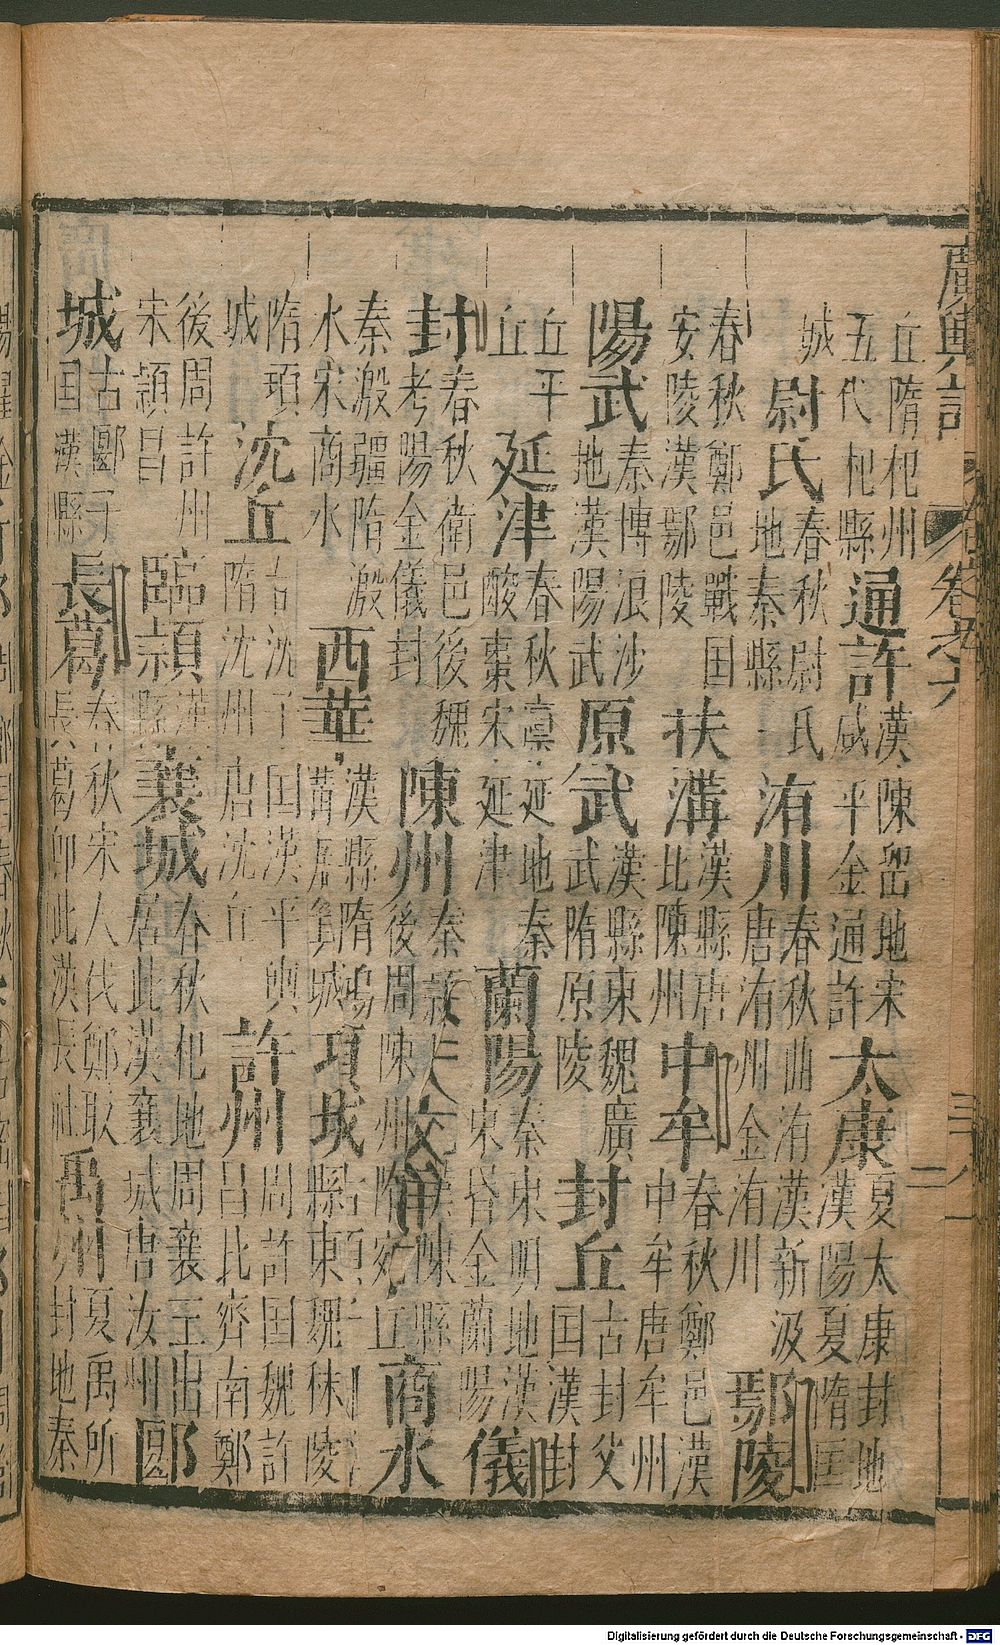 廣輿記 卷之六 二
丘隋杞州五代杞縣通許漢陳留地宋咸平金通許太康夏太康封地漢陽夏隋匡
城尉氏春秋尉氏地秦縣洧川春秋曲洧漢新汲唐洧州金洧川鄢陵
春秋鄭邑戰国安陵漢鄢陵扶溝漢縣唐比陳州中牟春秋鄭邑漢中牟唐牟州
陽武秦博浪沙地漢陽武原武漢縣東魏廣武隋原陵封丘古封父国漢封
丘平丘延津春秋廩延地秦酸棗宋延津蘭陽秦東明地漢東昬金蘭陽儀
封春秋衛邑後魏考陽金儀封陳州秦漢陳縣後周陳州隋宛丘商水
秦溵疆隋溵水宋商水西華漢縣隋鴻唐箕城項城縣東魏秣陵
隋項城沈丘古沈子国漢平輿隋沈州唐沈丘許州周許国魏許昌北齊南鄭
後周許州宋潁昌臨潁漢縣襄城春秋氾地周襄王出居此漢襄城唐汝州郾
城古郾子国漢縣長葛春秋宋人伐鄭取長葛卽此漢長社禹州夏禹所封地秦
Digitalisierung gefördert durch die Deutsche Forschungsgemeinschaft - DFG